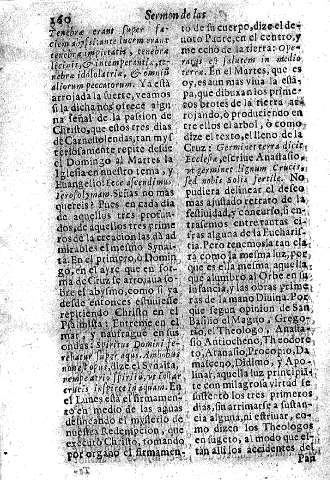 160 Sermon de las
Tenebræ erant super fa-
ciem abyssi ante lucem erant
tenebræ impietatis, tenebræ
tenebræ idololatriæ, & omniũ
aliorum peccatorum. Ya està
arrojada la suerte, veamos
si la dicha nos ofrece algu-
na señal de la passion de
Christo, que estos tres dias
de Carnestolendas, tan my-
steriosamente repite desde
el Domingo al Martes la
Iglesia en nuestro tema, y
Euangelio: Ecce ascendimus
Ierosolymam. Señas no mas
quereis? Pues en cada dia
de aquellos tres profun-
dos, de aquellos tres prime-
ros de la creacion las dà ad-
mirables el mesmo Synai-
ta. En el primero, ò Domin-
go, en el ayre que en for-
ma de Cruz se arrojaua so-
bre el abysmo, como si ya
desde entonces estuuiesse
repitiendo Christo en el
Psalmista: Entreme en el
mar, y naufraguè en sus
ondas: Spiritus Domini fe-
rebatur super aquas.
dize el Synaita,
En el
Lunes essa el firmamen-
to en medio de las aguas
delineando el mysterio de
nuestra Redempcion, que
executò Christo, tomando
por organo el firmamen-
to de su cuerpo, dize el de-
uoto Padre, en el centro, y
me echo de la tierra: Ope-
ratus est salutem in medio
terræ. En el Martes, que es
oy, es aun mas viua la esta-
pa, que dibuxan los prime-
ros brotes de la tierra ar-
rojando, ò produciendo en
tre ellos el arbol, ò como
dize el texto, el leño de la
Cruz: Germinet terra dicit
Ecclesia, escriue Anastasio,
vt germinet lignum Crucis,
sed nobis solis fertile. No
pudiera delinear el deseo
mas ajustado retrato de la
festiuidad, y concurso, si en-
trassemos entretantas ci-
fras alguna de la Eucharis-
tia. Pero tenemosla tan cla-
ra como la mesma luz, por-
que es ella mesma aquella
que alumbrò al Orbe en su
infancia, y las obras prime-
ras de la mano Diuina. Por-
que segun opinion de San
Basilio el Magno, Grego-
rio el Theologo, Anasta-
sio Antiocheno, Theodore-
to, Atanasio, Procopio, Da-
masceno, Didimo, y Apo-
linar, aquella luz principiã-
te con milagrosa virtud se
sustentò los tres primeros
dias, sin arrimarse a sustan-
cia alguna, ni estriuar, co-
mo dizen los Theologos
en sugeto, al modo que es-
tan alli los accidentes del
Pan